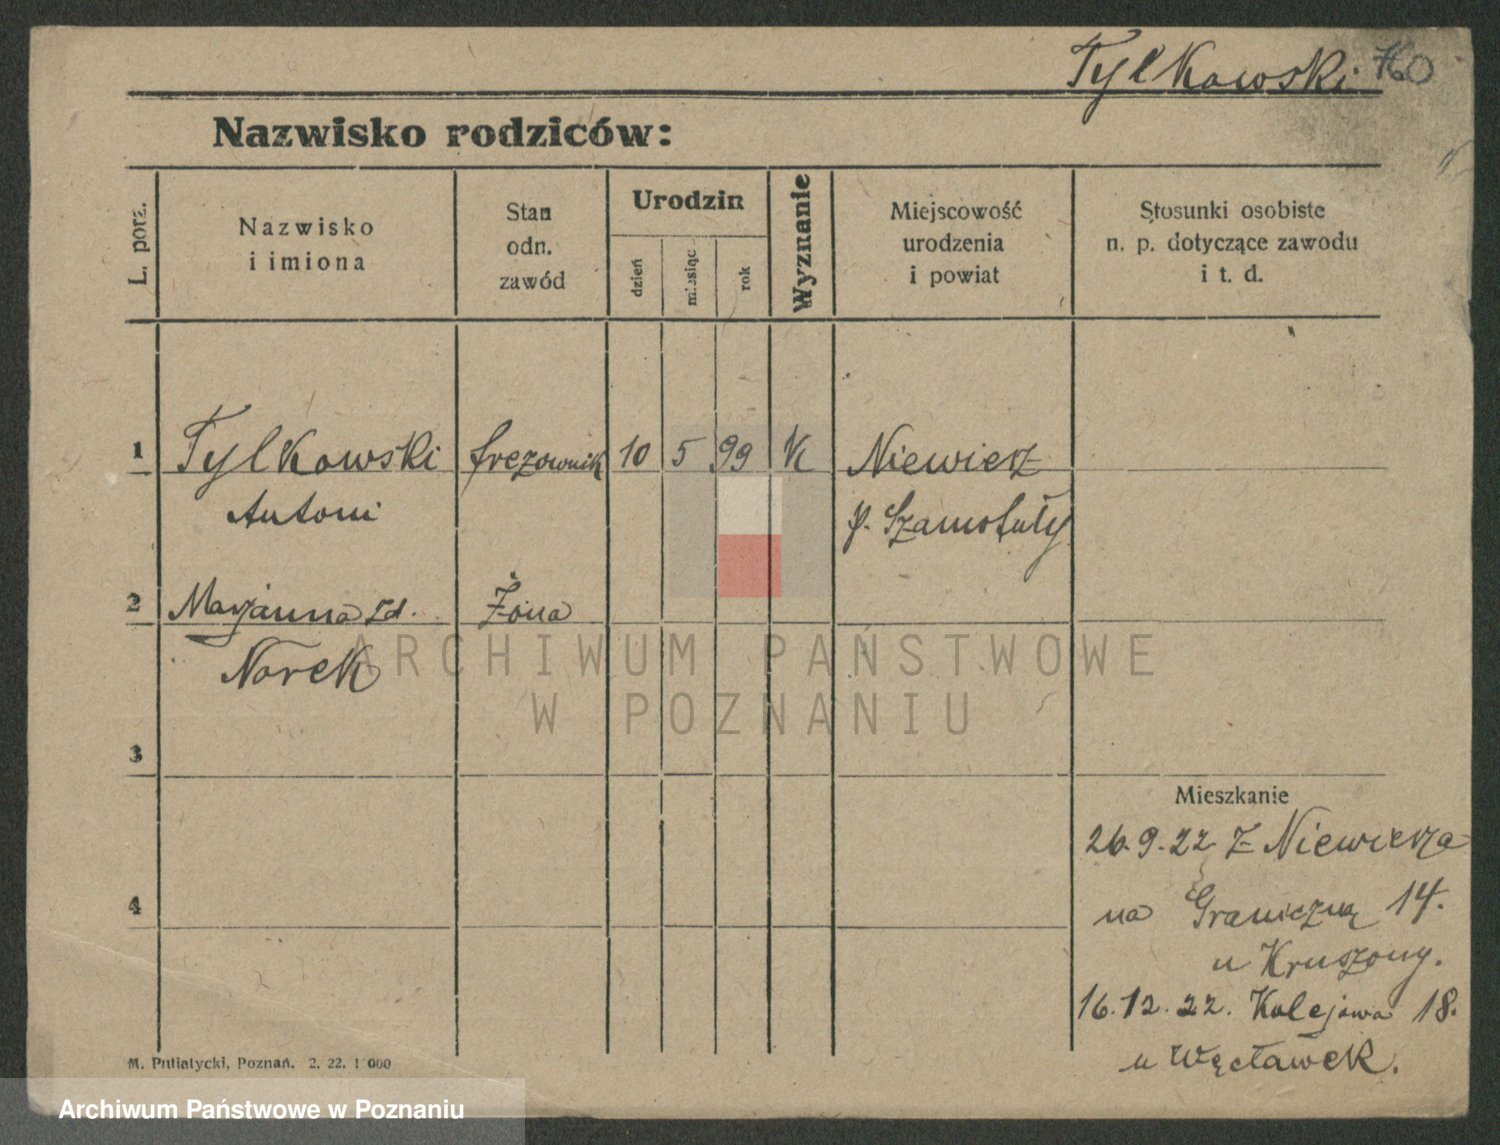 Tylkowski 760
Nazwisko rodziców:
L. porz.
Nazwisko
i imiona
Stan
odn.
zawód
Urodzin
dzień
miesiąc
rok
Wyznanie
Miejscowość
urodzenia
i powiat
Stosunki osobiste
n. p. dotyczące zawodu
i t. d.
1 Tylkowski frezownik 10 5 99 K Niewierz
Antoni p. Szamotuły
2 Marjanna zd. Żona
Norek
ARCHIWUM PAŃSTWOWE
W POZNANIU
3
Mieszkanie
26.9.22 z Niewierza
4
na Graniczną 14.
u Kruszony.
16.12.22. Kolejowa 18.
u Węcławek.
M. Putiatycki, Poznań. 2. 22. 1 000
Archiwum Państwowe w Poznaniu